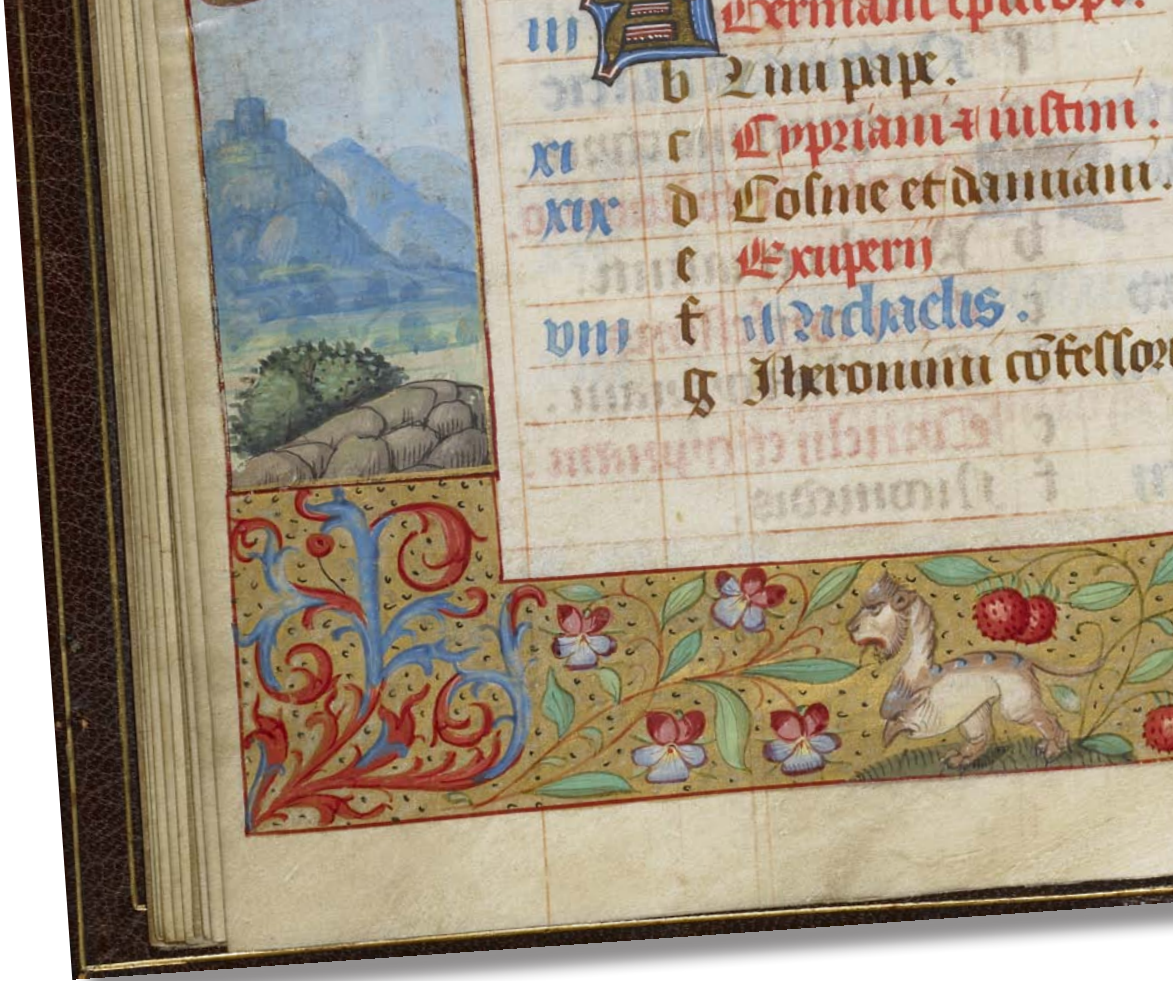 iii A Germani episcopi.
b Lini pape.
xi c Cypriani ⁊ iustini.
xix d Cosme et damiani.
e Exuperij
viii f Michaelis.
g Iheronimi cõfessor